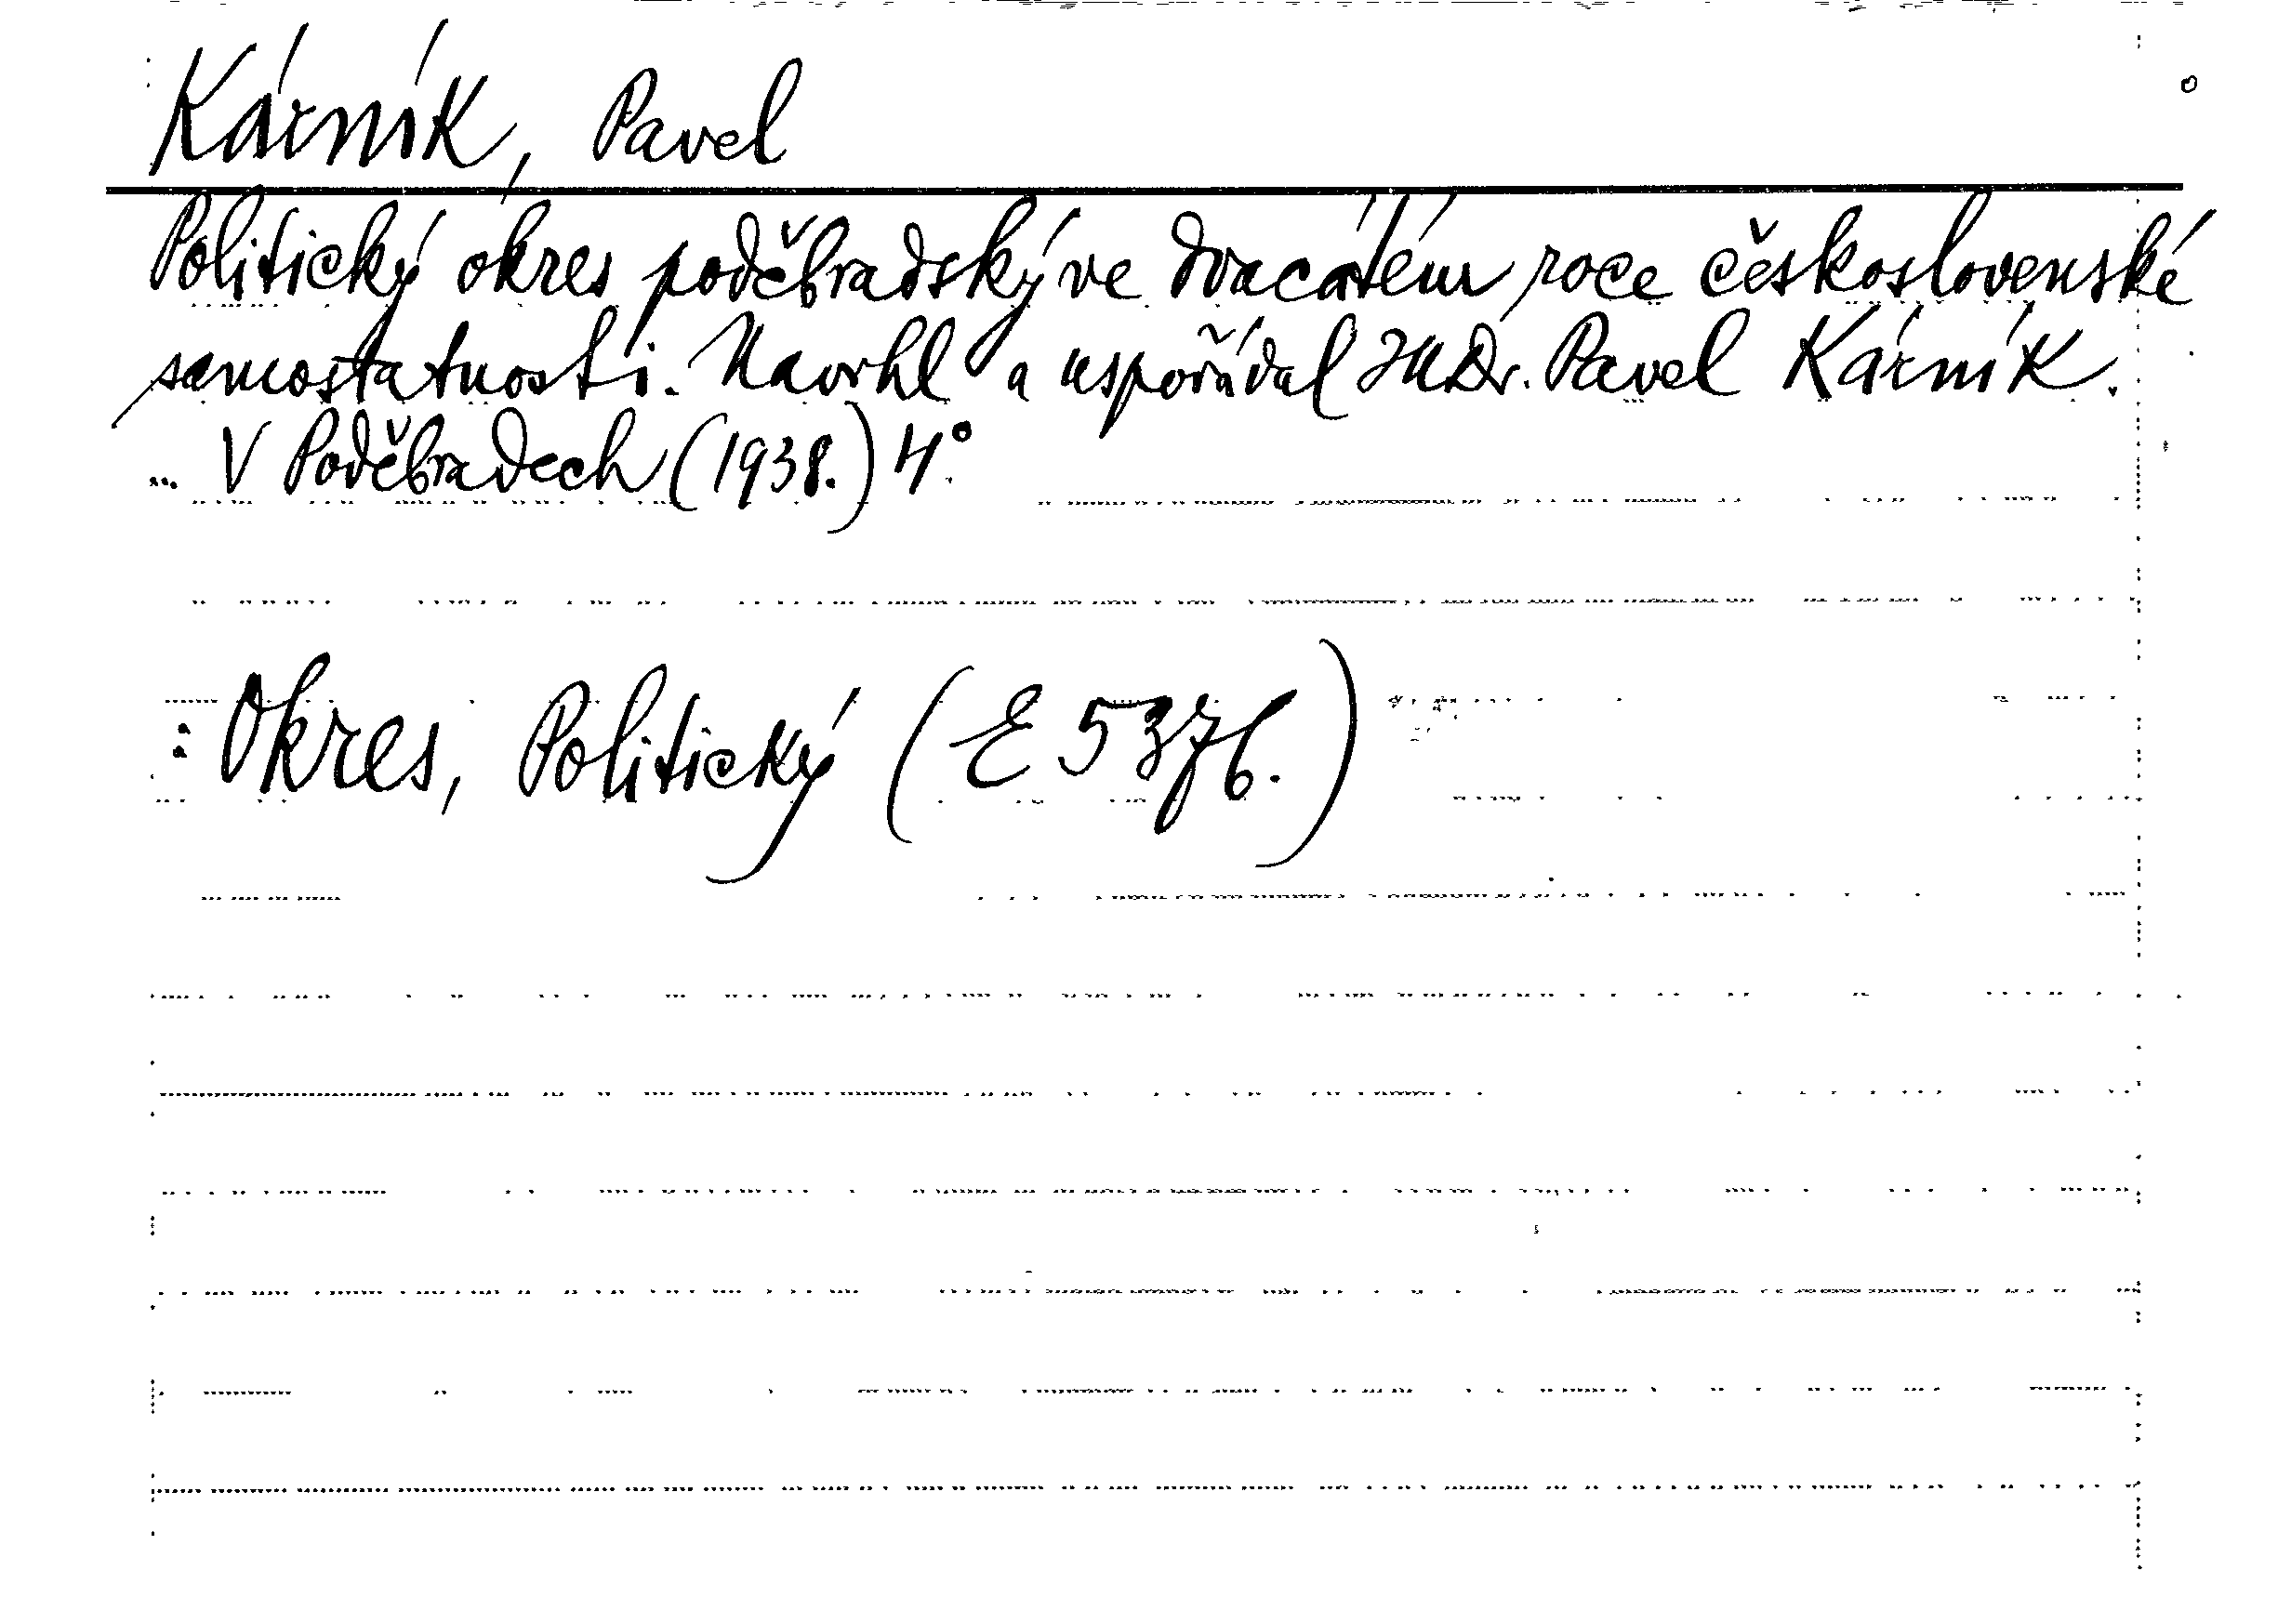 Kárník, Pavel
Politický okres poděbradský ve dvacátém roce československé
samostatnosti. Navrhl a uspořádal JUDr. Pavel Kárník.
... V Poděbradech (1938.) 4°.
: Okres, Politický (E 5376.)